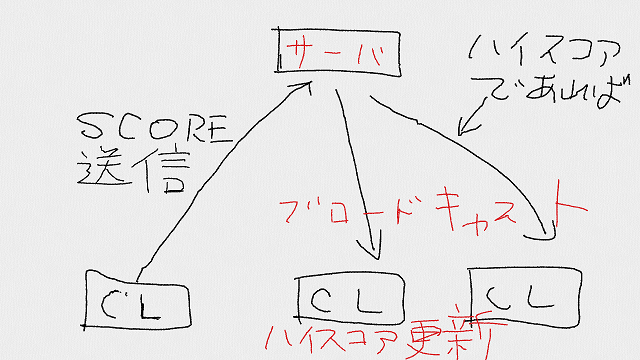 サーバ
ハイスコア
であれば
SCORE
送信
ブロードキャスト
CL
CL
CL
ハイスコア更新